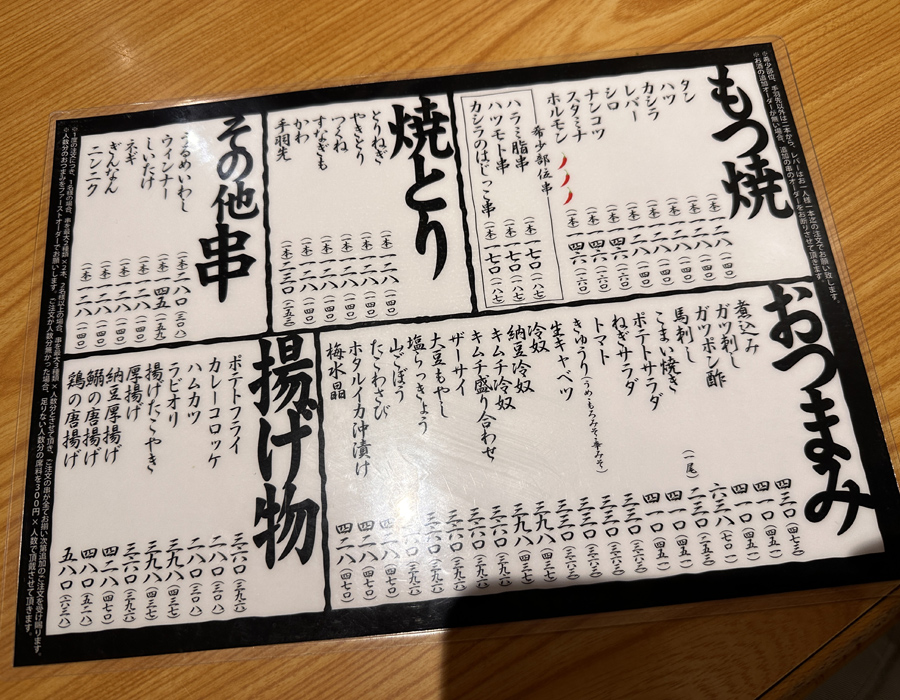 ※希少部位、手羽先以外は二本から、レバーはお一人様一本迄の注文でお願い致します。
※お酒の追加オーダーが無い場合、追加の串のオーダーをお断りさせて頂きます。
もつ焼
タン (一本) 一二八 (一四〇)
ハツ (一本) 一二八 (一四〇)
カシラ (一本) 一二八 (一四〇)
レバー (一本) 一二八 (一四〇)
シロ (一本) 一二八 (一四〇)
ナンコツ (一本) 一四六 (一六〇)
スタミナ (一本) 一四六 (一六〇)
ホルモン (一本) 一四六 (一六〇)
希少部位串
ハラミ脂串 (一本) 一七〇 (一八七)
ハツモト串 (一本) 一七〇 (一八七)
カシラのはじっこ串 (一本) 一七〇 (一八七)
焼とり
とりねぎ (一本) 一二八 (一四〇)
やきとり (一本) 一二八 (一四〇)
つくね (一本) 一二八 (一四〇)
すなぎも (一本) 一二八 (一四〇)
かわ (一本) 一二八 (一四〇)
手羽先 (一本) 二三〇 (二五三)
その他串
うるめいわし (一本) 二八〇 (三〇八)
ウィンナー (一本) 一四五 (一五九)
しいたけ (一本) 一二八 (一四〇)
ネギ (一本) 一二八 (一四〇)
ぎんなん (一本) 一二八 (一四〇)
ニンニク (一本) 一二八 (一四〇)
おつまみ
煮込み 四三〇 (四七三)
ガツ刺し 四一〇 (四五一)
ガツポン酢 四一〇 (四五一)
馬刺し 六三八 (七〇一)
こまい焼き (一尾) 二三〇 (二五三)
ポテトサラダ 四一〇 (四五一)
ねぎサラダ 四一〇 (四五一)
トマト 三三〇 (三六三)
きゅうり (うめ・もろみそ・辛みそ) 三三〇 (三六三)
生キャベツ 三三〇 (三六三)
冷奴 三三〇 (三六三)
納豆冷奴 三九八 (四三七)
キムチ冷奴 三九八 (四三七)
キムチ盛り合わせ 三六〇 (三九六)
ザーサイ 三六〇 (三九六)
大豆もやし 三六〇 (三九六)
塩らっきょう 三六〇 (三九六)
山ごぼう 三六〇 (三九六)
たこわさび 四二八 (四七〇)
ホタルイカ沖漬け 四二八 (四七〇)
梅水晶 四二八 (四七〇)
揚げ物
ポテトフライ 三六〇 (三九六)
カレーコロッケ 二八〇 (三〇八)
ハムカツ 二八〇 (三〇八)
ラビオリ 三九八 (四三七)
揚げたこやき 三九八 (四三七)
厚揚げ 三六〇 (三九六)
納豆厚揚げ 四二八 (四七〇)
鰯の唐揚げ 四八〇 (五二八)
鶏の唐揚げ 五八〇 (六三八)
※1度の注文につき、1名様の場合、串を最大2種類×2本、2名様以上の場合、串を最大3種類×人数分とさせて頂き、ご注文の串が全てお揃い次第追加のご注文を受け賜ります。
※人数分のおつまみをファーストオーダーでお願いします。ご注文が人数分無かった場合、足りない人数分の席料を300円×人数で頂戴させて頂きます。